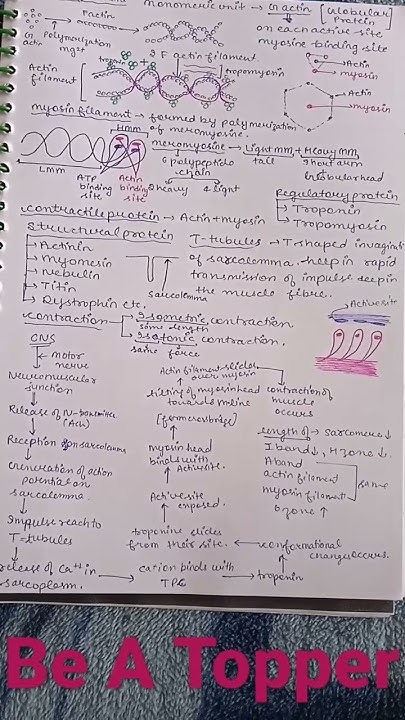 monomeric unit → G actin [Globular
Protein
F actin
on each active site
myosine binding site
G
actin
Polymerization
mg²⁺
troponin
2 F actin filament
tropomyosin
Actin
filament
Actin
myosin
Actin
myosin
myosin filament → formed by polymerization
of meromyosine.
HMM
meromyosine → Light mm, + Heavy mm,
6 polypeptide
chain
tail
short arm
globular head
2 heavy
4 light
LMM
ATP
binding
site
Actin
binding
site
Regulatory protein
→ Troponin
→ Tropomyosin
contractile protein → Actin + myosin
Structural protein
→ Actinin
→ Myomesin
→ Nebulin
→ Titin
→ Dystrophin etc.
T-tubules → T shaped invagination
of sarcolemma. help in rapid
transmission of impulse deep in
the muscle fibre.
sarcolemma
Active site
contraction → Isometric contraction
same length
→ Isotonic contraction.
same force
CNS
motor
nerve
Neuromuscular
junction
Release of N-transmitter
(Ach)
Reception on sarcolemma
Generation of action
potential on
sarcolemma.
Impulse reach to
T-tubules
release of Ca⁺⁺ in
sarcoplasm.
cation binds with
TPC
troponin
conformational
changes occurs.
troponine slides
from their site.
Active site
exposed.
myosin head
binds with
Active site.
[form cross bridge]
tilting of myosin head
towards M line
Actin filament slides
over myosin
contraction of
muscle
occurs
length of → Sarcomere ↓
I band ↓, H zone ↓
A band
actin filament
myosin filament
same
O zone ↑
Be A Topper